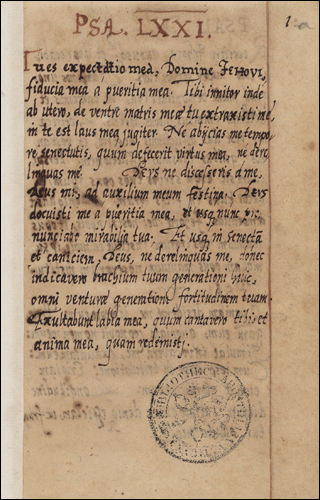 PSA. LXXI.
1
Tu es expectatio mea, Domine JEHOVI,
fiducia mea a pueritia mea. Tibi innitor inde
ab utero, de ventre matris meæ tu extraxisti me,
in te est laus mea jugiter. Ne abijcias me tempo„
re senectutis, quum defecerit virtus mea, ne dere„
linquas me DEUS ne discesseris a me,
Deus mi, ad auxilium meum festina. DEUS
docuisti me a pueritia mea, et usq nunc
nunciabo mirabilia tua. Et usq in senecta
et caniciem, Deus, ne derelinquas me, donec
indicavero brachium tuum generationi huic,
omni venturæ generationi fortitudinem tuam.
Exultabunt labia mea, quum cantavero tibi, et
anima mea, quam redemisti.